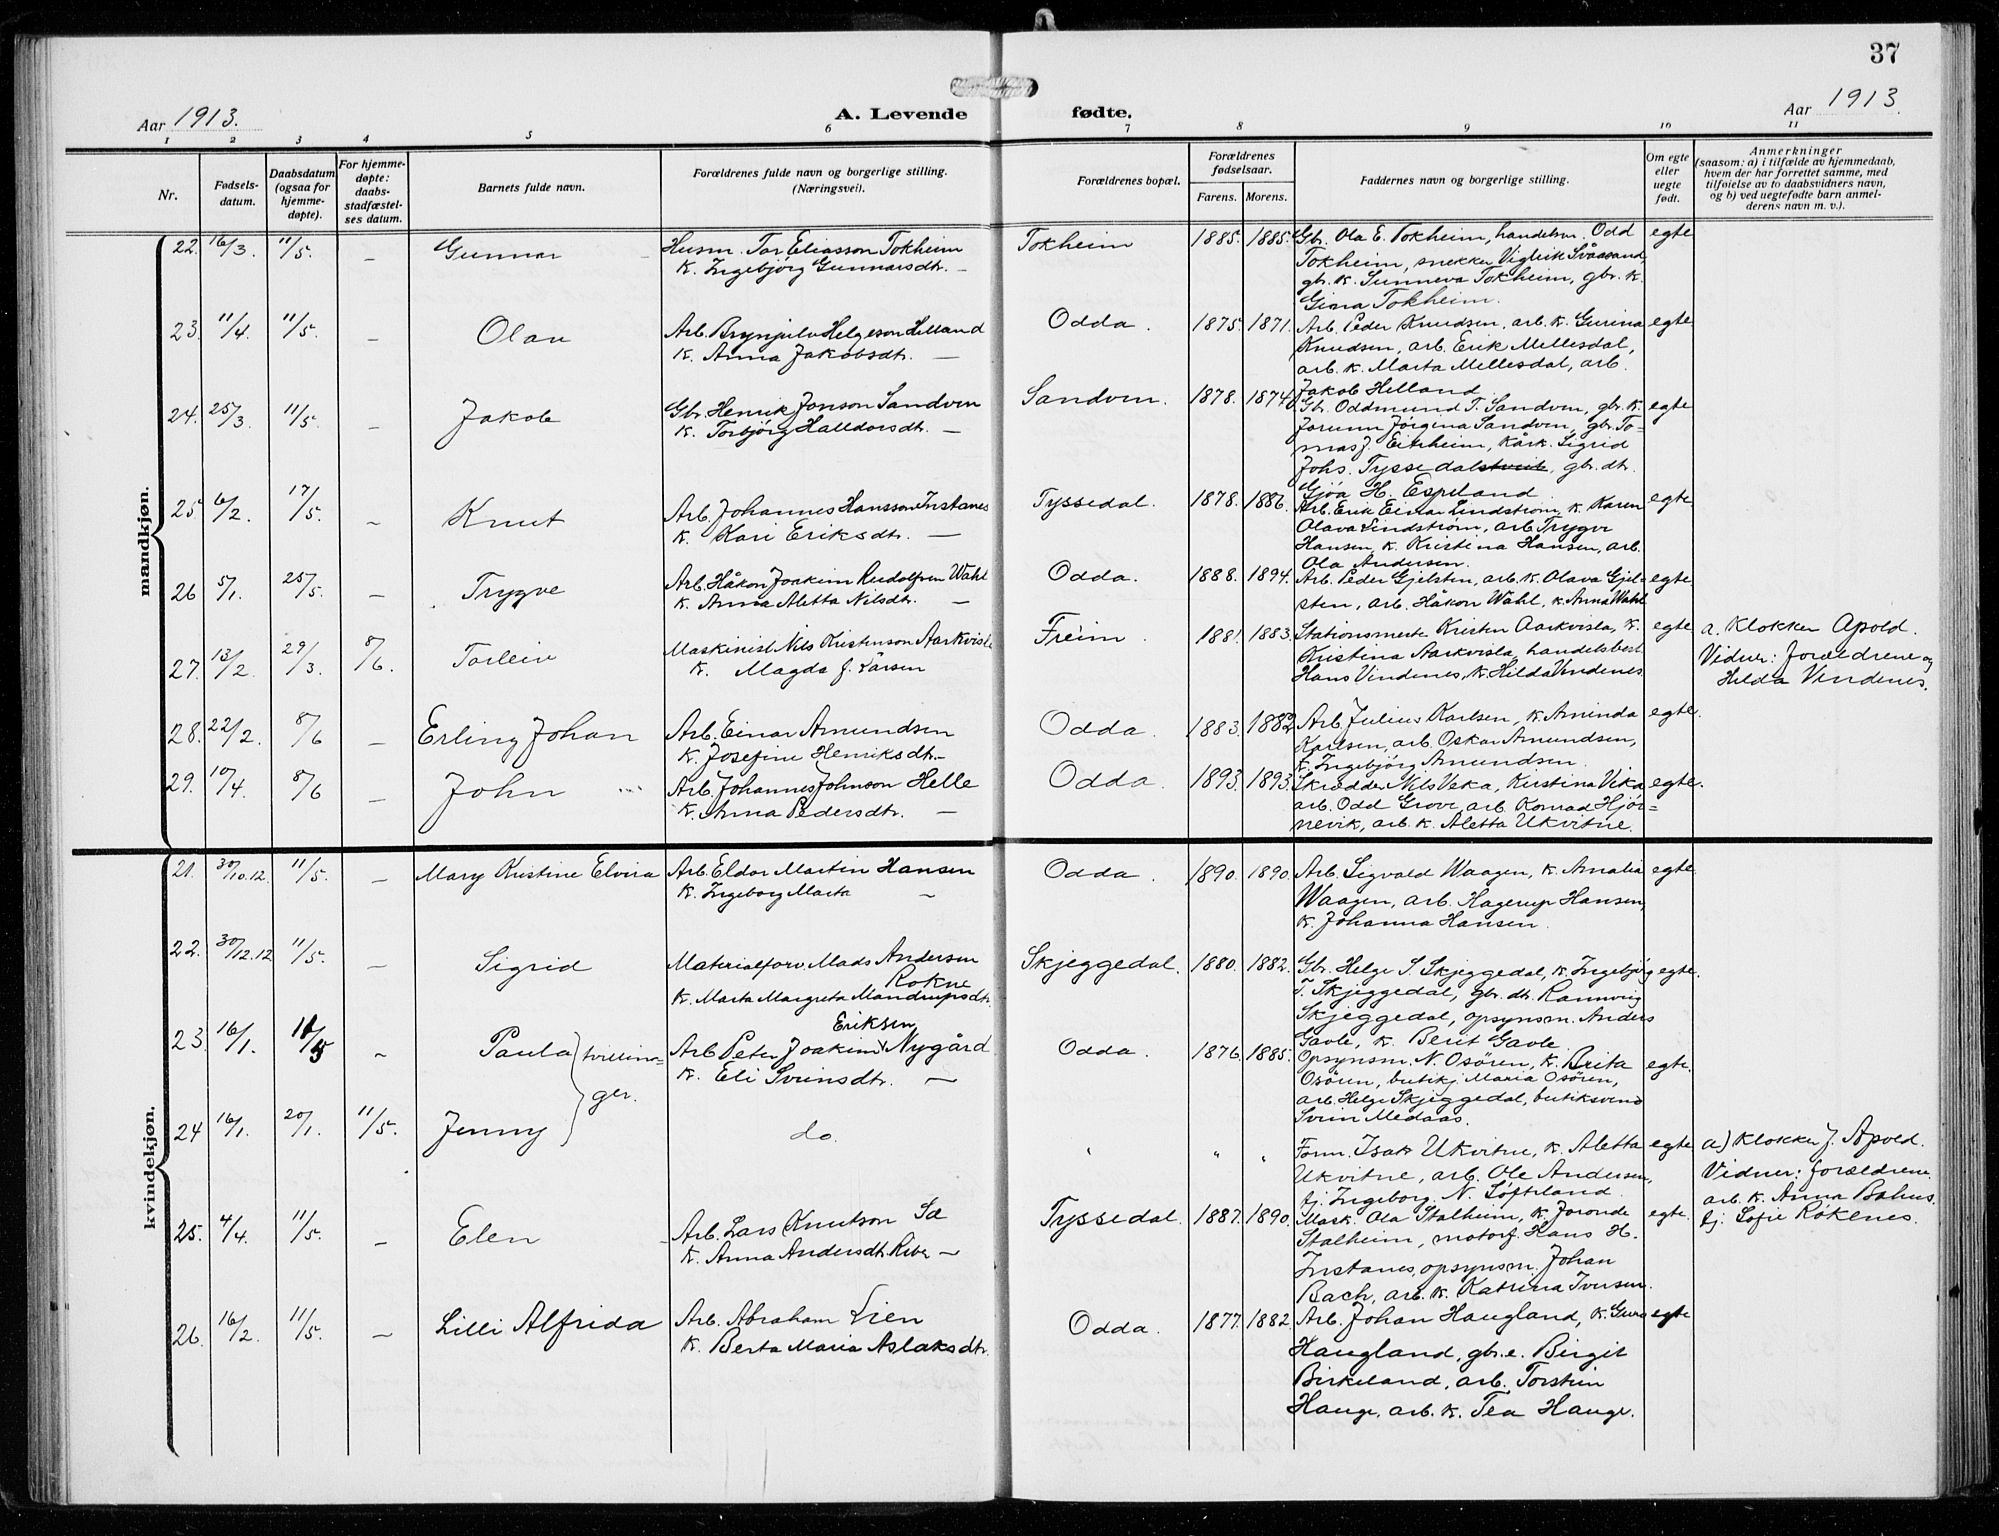 37
Aar 1913.
A. Levende
fødte.
Aar 1913.
1 2 3 4 5 6 7 8 9 10 11
Nr.
Fødsels-
datum.
Daabsdatum
(ogsaa for
hjemme-
døpte).
For hjemme-
døpte:
daabs-
stadfæstel-
ses datum.
Barnets fulde navn.
Forældrenes fulde navn og borgerlige stilling.
(Næringsvei).
Forældrenes bopæl.
Forældrenes
fødselsaar.
Farens. Morens.
Faddernes navn og borgerlige stilling.
Om egte
eller
uegte
født.
Anmerkninger
(saasom: a) i tilfælde av hjemmedaab,
hvem der har forrettet samme, med
tilføielse av to daabsvidners navn,
og b) ved uegtefødte barn anmel-
derens navn m. v.).
mandkjøn.
22. 16/3. 11/5. – Gunnar
Husm. Tor Eliasson Tokheim
K. Ingebjørg Gunnarsdtr. –
Tokheim 1885. 1885.
Gbr. Ola E. Tokheim, handelsm. Odd
Tokheim, snekker Viglik Svåasand,
gbr. k. Sunneva Tokheim, gbr. k.
Gina Tokheim.
egte
23. 11/4. 11/5. – Olav
Arb. Brynjulv Helgeson Helland
K. Anna Jakobsdtr. –
Odda. 1875. 1871.
Arb. Peder Knudsen, arb. k. Gurina
Knudsen, arb. Erik Mellesdal,
arb. k. Marta Mellesdal, arb.
Jakob Helland.
egte
24. 25/3. 11/5. – Jakob
Gbr. Henrik Jonson Sandven
K. Torbjørg Halldorsdtr. –
Sandven. 1878. 1874.
Gbr. Oddmund T. Sandven, gbr. k.
Jorunn Jørgina Sandven, gbr. To-
mas J. Eitrheim, kårk. Sigrid
Johs. Tyssedalstveit, gbr. dtr.
Gjøa H. Espeland
egte
25. 6/2. 17/5. – Knut
Arb. Johannes Hansson Instanes
K. Kari Eriksdtr. –
Tyssedal. 1878. 1886.
Arb. Erik Einar Lindstrøm, k. Karen
Olava Lindstrøm, arb. Trygve
Hansen, k. Kristina Hansen, arb.
Ola Andersen.
egte
26. 5/1. 25/5. – Trygve
Arb. Håkon Joakim Rudolfsen Wahl
K. Anna Aletta Nilsdtr. –
Odda. 1888. 1894.
Arb. Peder Gjelsten, arb. k. Olava Gjel-
sten, arb. Håkon Wahl, k. Anna Wahl
egte
27. 13/2. 29/3. 8/6. Torleiv
Maskinist Nils Kristenson Aarkvisla
K. Magda f. Larsen
Freim. 1881. 1883.
Stationsmester Kristen Aarkvisla, k.
Kristina Aarkvisla, handelsbest.
Hans Vindenes, k. Hilda Vindenes
egte
a. Klokker Apold.
Vidner: forældrene og
Hilda Vindenes.
28. 22/2. 8/6 – Erling Johan
Arb. Einar Amundsen
K. Josefine Henriksdtr. –
Odda. 1883. 1882
Arb. Julius Karlsen, k. Aminda
Karlsen, arb. Oskar Amundsen,
k. Ingebjørg Amundsen.
egte.
29. 10/4. 8/6 – John
Arb. Johannes Johnson Helle
K. Anna Pedersdtr. –
Odda. 1893. 1893.
Skrædder Nils Veka, Kristina Veka
arb. Odd Grove, arb. Konrad Hjør-
nevik, arb. k. Aletta Ukvitne.
egte.
kvindekjøn.
21. 30/10.12. 11/5. – Mary Kristine Elvira
Arb. Eldor Martin Hansen
K. Ingeborg Marta –
Odda. 1890. 1890.
Arb. Sigvald Waagen, k. Amalia
Waagen, arb. Hagerup Hansen,
k. Johanna Hansen.
egte
22. 30/12.12 11/5. – Sigrid
Materialforv. Mads Andersen
Rokne
K. Marta Margreta Mandrupsdtr.
Skjeggedal. 1880. 1882.
Gbr. Helge S. Skjeggedal, k. Ingebjørg
T. Skjeggedal, gbr. dtr. Rannveig
Skjeggedal, opsynsm. Anders
Gavle, k. Berit Gavle.
egte.
23. 16/1. 11/5 – Paula } tvillin-
ger.
Eriksen
Arb. Peter Joakim Nygård
K. Eli Sveinsdtr. –
Odda. 1876. 1885.
Opsynsm. N. Osören, k. Brita
Osören, butikj. Maria Osören,
arb. Helge Skjeggedal, butiksvend
Svein Medaas.
egte.
24 16/1. 20/1. 11/5. Jenny
do.
" " "
Form. Isak Ukvitne, k. Aletta
Ukvitne, arb. Ole Andersen,
tj. Ingeborg N. Løfteland.
egte
a) Klokker J. Apold.
Vidner: forældrene.
arb. k. Anna Bohus.
tj. Sofie Røkenes.
25. 4/4. 11/5. – Elen
Arb. Lars Knutson Sæ
K. Anna Andersdtr. Riber –
Tyssedal. 1887. 1890.
Mask. Ola Stalheim, k. Joronde
Stalheim, motorf. Hans H.
Instanes, opsynsm. Johan
Bach, arb. k. Katrina Iversen.
egte.
26. 16/2. 11/5. – Lilli Alfrida
Arb. Abraham Lien
K. Berta Maria Aslaksdtr.
Odda. 1877. 1882.
Arb. Johan Haugland, k. Guro
Haugland, gbr. e. Birgit
Birkeland, arb. Torstein
Hauge, arb. k. Tea Hauge.
egte